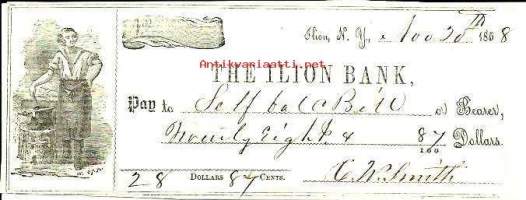 Ilion, N. Y., Nov 20th 1868
Antikvariaatti.net
THE ILION BANK,
Pay to Self bal C Bill or Bearer,
Twenty eight & 87/100 Dollars.
28 DOLLARS 87 CENTS.
C. W. Smith